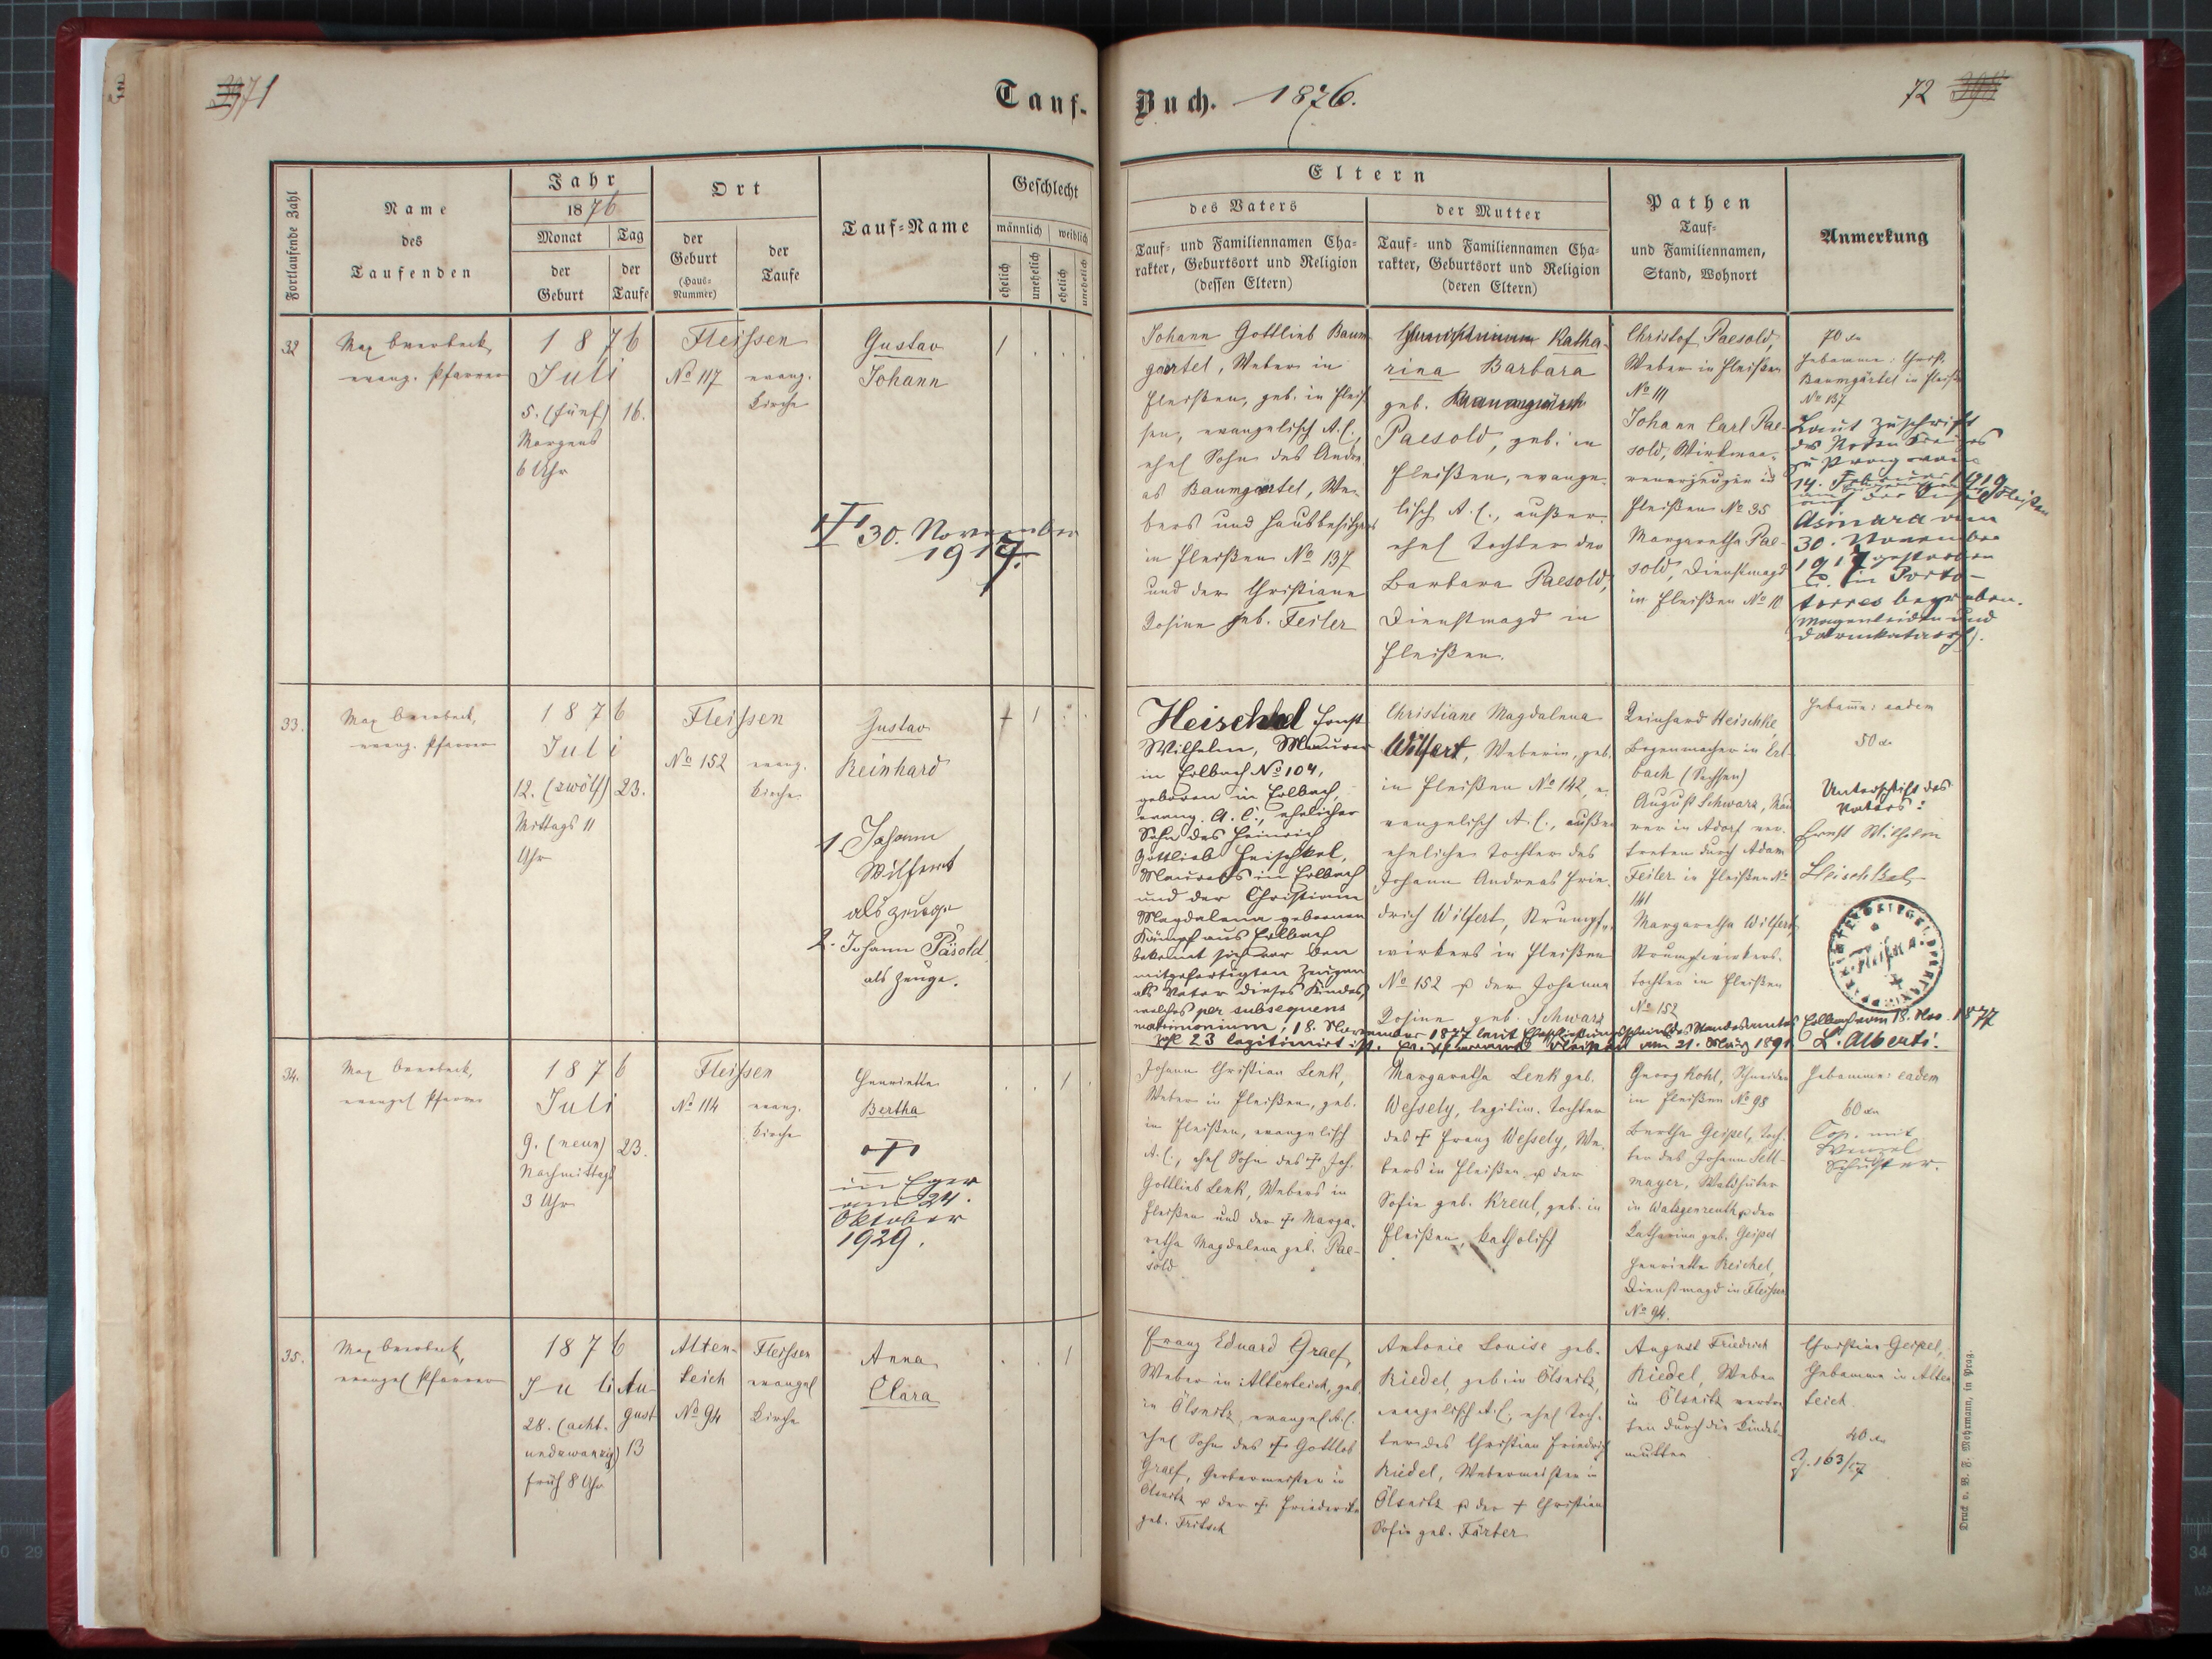 71
Tauf-
Buch. 1876.
72
Fortlaufende Zahl
Name
des
Taufenden
Jahr
1876
Monat
Tag
der
Geburt
der
Taufe
Ort
der
Geburt
(Haus-
Nummer)
der
Taufe
Tauf-Name
Geschlecht
männlich
weiblich
ehelich
unehelich
ehelich
unehelich
Eltern
des Vaters
Tauf- und Familiennamen Cha-
rakter, Geburtsort und Religion
(dessen Eltern)
der Mutter
Tauf- und Familiennamen Cha-
rakter, Geburtsort und Religion
(deren Eltern)
Pathen
Tauf-
und Familiennamen,
Stand, Wohnort
Anmerkung
32
Max
evang. Pfarrer
1876
Juli
5. (fünf)
16.
Morgens
6 Uhr
Fleissen
No 117
evang.
Kirche
Gustav
Johann
1
30. November
1917.
Johann Gottlieb Baum-
gärtel, Weber in
Fleißen, geb. in Fleis-
sen, evangelisch A.C.,
ehel Sohn des Andre-
as Baumgärtel, We-
bers und Hausbesitzers
in Fleißen No 137
und der Christiane
Rosine geb. Feiler
Katha-
rina Barbara
geb.
Paesold, geb. in
Fleißen, evange-
lisch A.C., außer-
ehel Tochter der
Barbara Paesold,
Dienstmagd in
Fleißen.
Christof Paesold,
Weber in Fleißen
No 111
Johann Carl Pae-
sold, Wirkwaa-
renerzeuger in
Fleißen No 35
Margaretha Pae-
sold, Dienstmagd
in Fleißen No 10
70
Hebamme: Christ.
Baumgärtel in Fleißen
No 137
Laut Zuschrift
des Roten Kreuzes
zu Prag vom
14. Februar 1919
auf der Insel
Asinara am
30. November
1917 gestorben
u. in Porto-
torres begraben.
(Magenleiden und
Darmkatarrh).
33.
Max
evang. Pfarrer
1876
Juli
12. (zwölf)
23.
Mittags 11
Uhr
Fleissen
No 152
evang.
Kirche
Gustav
Reinhard
1. Johann
Wilfert
als Zeuge
2. Johann Päsold
als Zeuge.
1
Heischkel Ernst
Wilhelm, Maurer
in Erlbach No 104,
geboren in Erlbach,
evang. A.C., ehelicher
Sohn des Heinrich
Gottlieb Heischkel,
Maurers in Erlbach
und der Christiane
Magdalena geborenen
Kämpf aus Erlbach
bekennt sich vor den
mitgefertigten Zeugen
als Vater dieses Kindes,
welches per subsequens
matrimonium, 18. November 1877 laut Eheschließungsschein des Standesamtes Erlbach vom 18. Nov. 1877
Zahl 23 legitimiert ist. Ev. Pfarramt Fleißen am 21. März 1891. L. Alberti.
Christiane Magdalena
Wilfert, Weberin, geb.
in Fleißen No 142, e-
vangelisch A.C., außer-
eheliche Tochter des
Johann Andreas Frie-
drich Wilfert, Strumpf-
wirkers in Fleißen
No 152 & der Johanna
Rosine geb. Schwarz
Reinhard Heischke,
Bogenmacher in Erl-
bach (Sachsen)
August Schwarz, Mau-
rer in Adorf ver-
treten durch Adam
Feiler in Fleißen No
141
Margaretha Wilfert,
Strumpfwirkers-
tochter in Fleißen
No 152
Hebamme: eadem
50
Unterschrift des
Vaters:
Ernst Wilhelm
Heischkel
34.
Max
evangel Pfarrer
1876
Juli
9. (neun)
23.
Nachmittags
3 Uhr
Fleissen
No 114
evang.
Kirche
Henriette
Bertha
in Eger
am 24.
Oktober
1929.
1
Johann Christian Lenk,
Weber in Fleißen, geb.
in Fleißen, evangelisch
A.C., ehel Sohn des † Joh.
Gottlieb Lenk, Webers in
Fleißen und der † Marga-
retha Magdalena geb. Pae-
sold
Margaretha Lenk geb.
Wessely, legitim. Tochter
des † Franz Wessely, We-
bers in Fleißen & der
Sofie geb. Kreul, geb. in
Fleißen, katholisch
Georg Kohl, Schneider
in Fleißen No 98
Bertha Geipel, Toch-
ter des Johann Sell-
mayer, Waldhüter
in Watzgenreuth & der
Katharina geb. Geipel
Henriette Reichel,
Dienstmagd in Fleissen
No 94.
Hebamme: eadem
60
Cop. mit
Wenzel
Schuster.
35.
Max
evangel Pfarrer
1876
Juli
Au-
gust
28. (acht-
undzwanzig)
13
früh 8 Uhr
Alten-
teich
No 94
Fleissen
evangel
Kirche
Anna
Clara
1
Franz Eduard Graef,
Weber in Altenteich, geb.
in Ölsnitz, evangel A.C.
ehel Sohn des † Gottlob
Graef, Gerbermeister in
Ölsnitz & der † Friederike
geb. Fritsch
Antonie Louise geb.
Riedel, geb. in Ölsnitz,
evangelisch A.C., ehel Toch-
ter des Christian Friedrich
Riedel, Webermeister in
Ölsnitz & der † Christiane
Sofie geb. Färber
August Friedrich
Riedel, Weber
in Ölsnitz vertre-
ten durch die Kindes-
mutter
Christine Geipel,
Hebamme in Alten-
teich
40
Z. 163/17
Druck v. B. F. Mohrmann, in Prag.